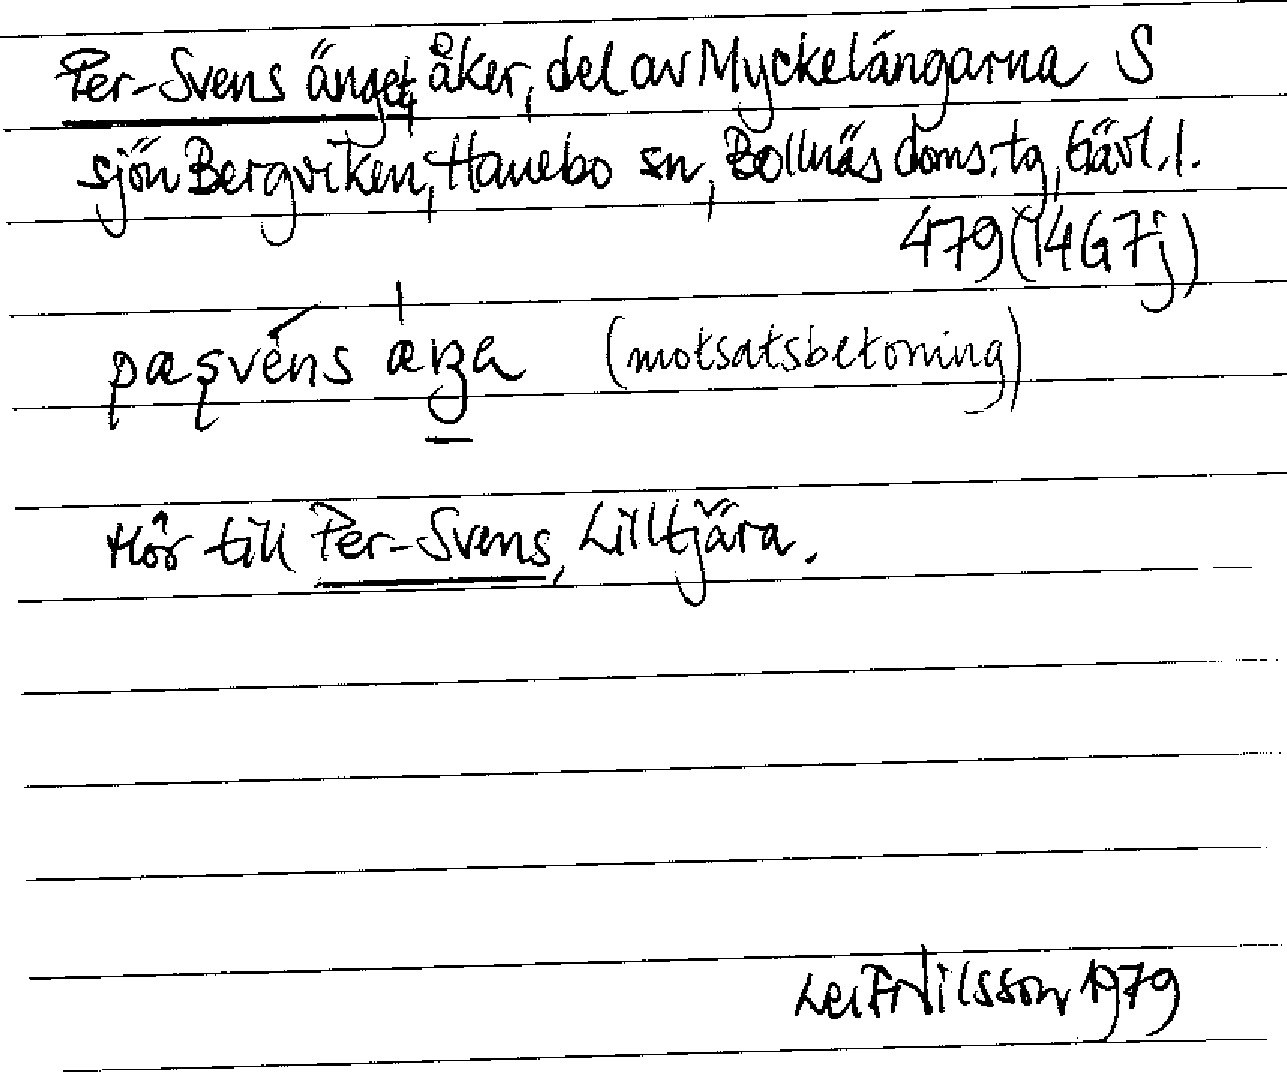 Per-Svens änget, åker, del av Myckelängarna S
sjön Bergviken, Hanebo sn, Bollnäs doms:tg, Gävl. l.
479 (14G7j)
(motsatsbetoning)
Hör till Per-Svens, Lilltjära.
Leif Nilsson 1979